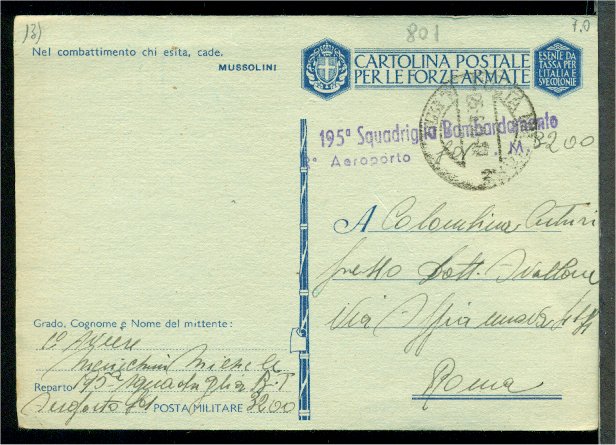 13)
801
7.0
Nel combattimento chi esita, cade.
MUSSOLINI
CARTOLINA POSTALE
PER LE FORZE ARMATE
ESENTE DA
TASSA PER
L'ITALIA E
SVE COLONIE
195ª Squadriglia Bombardamento
Aeroporto
M.
3200
A Colombina
presso Dott.
Via Appia nuova
Roma
Grado, Cognome e Nome del mittente:
1º Aviere
Michele
Reparto 195ª Squadriglia B.T
Aeroporto 801 POSTA MILITARE 3200